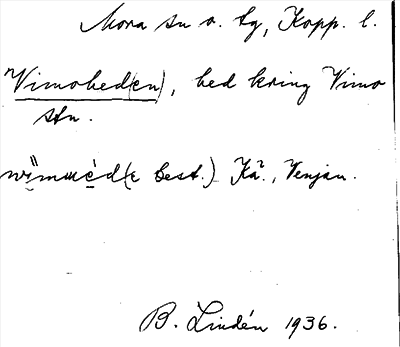 Mora sn o. tg, Kopp. l.
Vimohed(en), hed kring Vimo
stn.
(e best.) Kä., Venjan.
B. Lindén 1936.